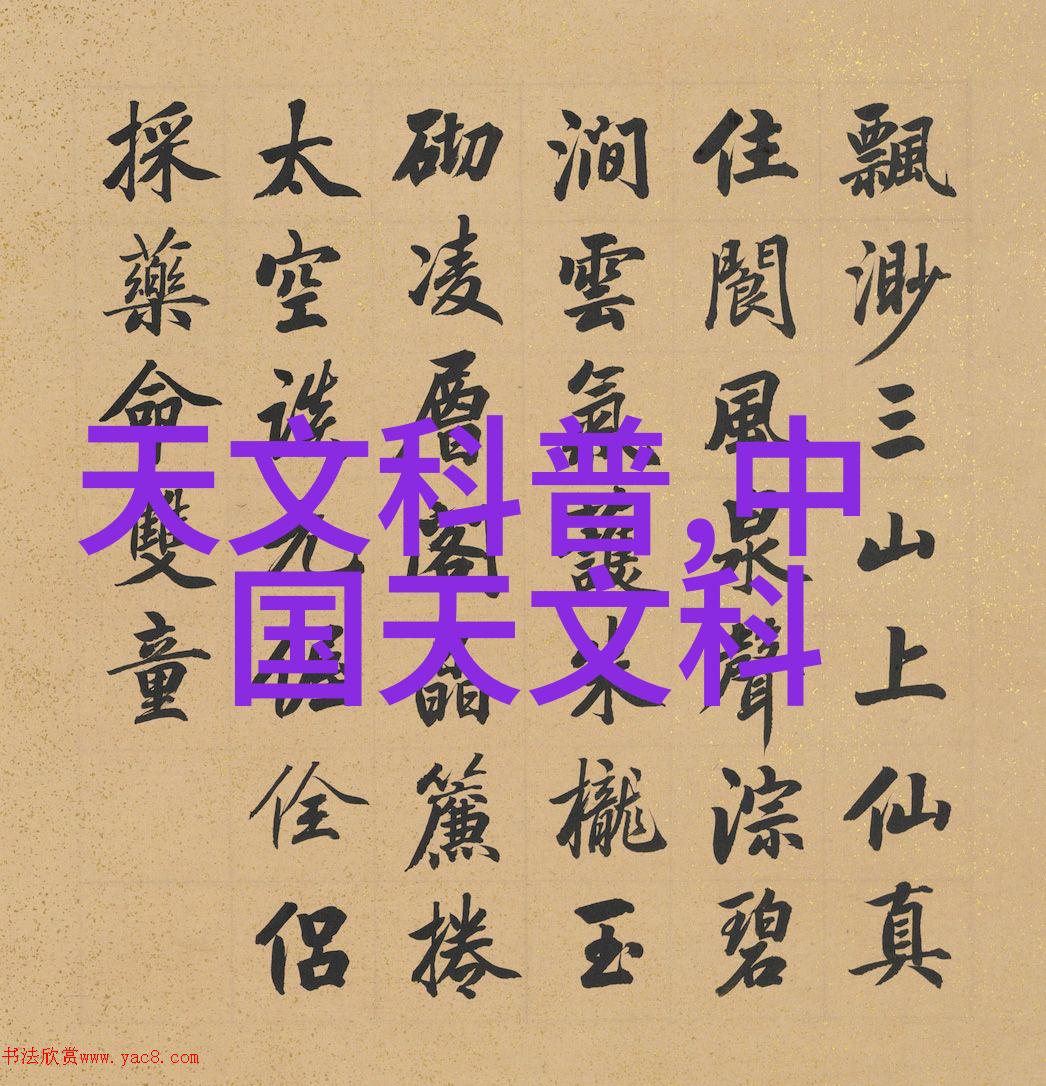 飄渺三山上仙真
住閬風泉聲淙碧
澗雲氣護朱櫳玉
砌凌層閣簾捲
太空偓佺侶
採藥命雙童
天文科普,中
国天文科
书法欣赏www.yac8.com